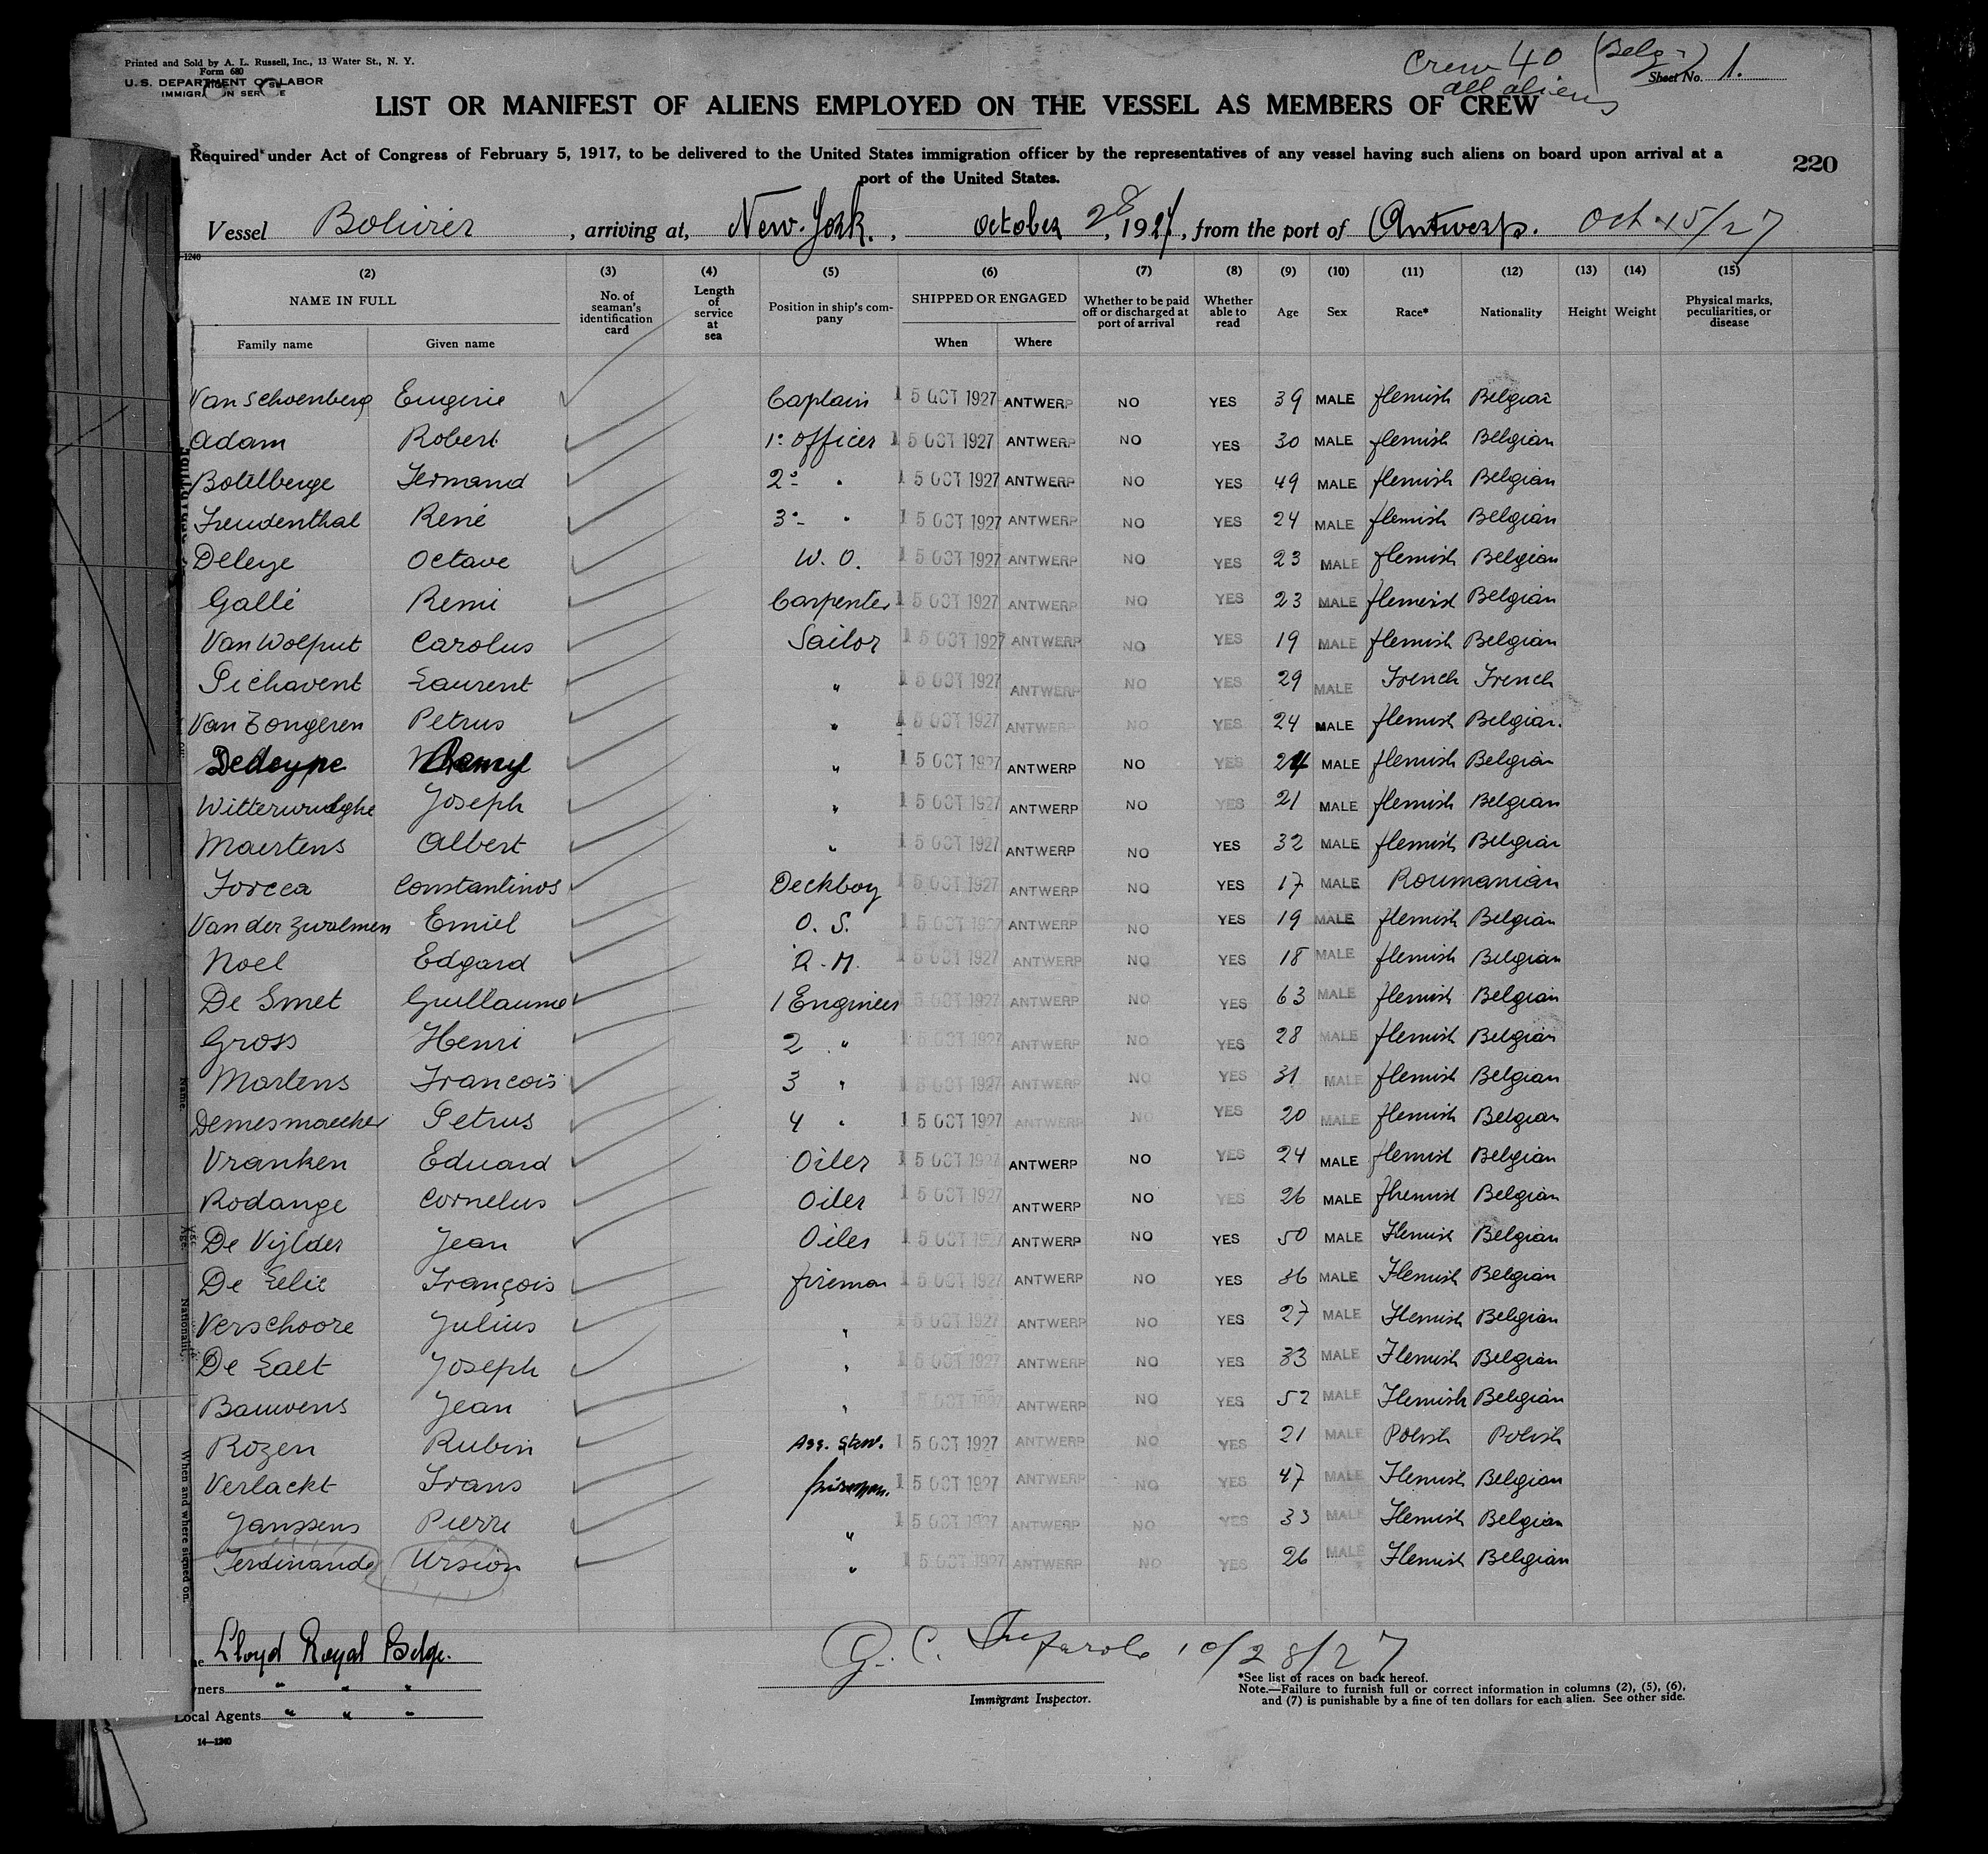 Printed and Sold by A. L. Russell, Inc., 13 Water St., N. Y.
Form 680
U. S. DEPARTMENT OF LABOR
IMMIGRATION SERVICE
Crew 40 (Belg.)
all aliens
Sheet No. 1.
LIST OR MANIFEST OF ALIENS EMPLOYED ON THE VESSEL AS MEMBERS OF CREW
Required under Act of Congress of February 5, 1917, to be delivered to the United States immigration officer by the representatives of any vessel having such aliens on board upon arrival at a
port of the United States.
220
Vessel Bolivier, arriving at, New-York., October 28, 1927, from the port of Antwerp. Oct 15/27
1240
(2) (3) (4) (5) (6) (7) (8) (9) (10) (11) (12) (13) (14) (15)
NAME IN FULL No. of seaman's identification card Length of service at sea Position in ship's company SHIPPED OR ENGAGED Whether to be paid off or discharged at port of arrival Whether able to read Age Sex Race* Nationality Height Weight Physical marks, peculiarities, or disease
Family name Given name When Where
Van Schoenberg Eugene Captain 15 OCT 1927 ANTWERP NO YES 39 MALE flemish Belgian
Adam Robert 1º officer 15 OCT 1927 ANTWERP NO YES 30 MALE flemish Belgian
Botelberge Fermand 2º " 15 OCT 1927 ANTWERP NO YES 49 MALE flemish Belgian
Freudenthal René 3º " 15 OCT 1927 ANTWERP NO YES 24 MALE flemish Belgian
Deleye Octave W. O. 15 OCT 1927 ANTWERP NO YES 23 MALE flemish Belgian
Gallé Remi Carpenter 15 OCT 1927 ANTWERP NO YES 23 MALE flemish Belgian
Van Wolput Carolus Sailor 15 OCT 1927 ANTWERP NO YES 19 MALE flemish Belgian
Pichavent Laurent " 15 OCT 1927 ANTWERP NO YES 29 MALE French French
Van Tongeren Petrus " 15 OCT 1927 ANTWERP NO YES 24 MALE flemish Belgian.
Dedeype Remy " 15 OCT 1927 ANTWERP NO YES 24 MALE flemish Belgian
Witterwulghe Joseph " 15 OCT 1927 ANTWERP NO YES 21 MALE flemish Belgian
Maertens Albert " 15 OCT 1927 ANTWERP NO YES 32 MALE flemish Belgian
Forcea Constantinos Deckboy 15 OCT 1927 ANTWERP NO YES 17 MALE Roumanian
Van der Zwalmen Emiel O. S. 15 OCT 1927 ANTWERP NO YES 19 MALE flemish Belgian
Noel Edgard 15 OCT 1927 ANTWERP NO YES 18 MALE flemish Belgian
De Smet Guillaume 1 Engineer 15 OCT 1927 ANTWERP NO YES 63 MALE flemish Belgian
Gross Henri 2 " 15 OCT 1927 ANTWERP NO YES 28 MALE flemish Belgian
Martens Francois 3 " 15 OCT 1927 ANTWERP NO YES 31 MALE flemish Belgian
Demesmaecker Petrus 4 " 15 OCT 1927 ANTWERP NO YES 20 MALE flemish Belgian
Vranken Eduard Oiler 15 OCT 1927 ANTWERP NO YES 24 MALE flemish Belgian
Rodange Cornelus Oiler 15 OCT 1927 ANTWERP NO YES 26 MALE flemish Belgian
De Vijlder Jean Oiler 15 OCT 1927 ANTWERP NO YES 50 MALE Flemish Belgian
De Lelie François fireman 15 OCT 1927 ANTWERP NO YES 36 MALE Flemish Belgian
Verschoore Julius " 15 OCT 1927 ANTWERP NO YES 27 MALE Flemish Belgian
De Laet Joseph " 15 OCT 1927 ANTWERP NO YES 33 MALE Flemish Belgian
Bauwens Jean " 15 OCT 1927 ANTWERP NO YES 52 MALE Flemish Belgian
Rozen Rubin Ass. Stew. 15 OCT 1927 ANTWERP NO YES 21 MALE Polish Polish
Verlackt Frans fireman. 15 OCT 1927 ANTWERP NO YES 47 MALE Flemish Belgian
Janssens Pierre " 15 OCT 1927 ANTWERP NO YES 33 MALE Flemish Belgian
Ferdinande Ursion " 15 OCT 1927 ANTWERP NO YES 26 MALE Flemish Belgian
Lloyd Royal Belge.
ners " " "
Local Agents " " "
14—1240
G. C. 10/28/27
Immigrant Inspector.
*See list of races on back hereof.
Note.—Failure to furnish full or correct information in columns (2), (5), (6),
and (7) is punishable by a fine of ten dollars for each alien. See other side.
Name.
Age.
Nationality.
When and where signed on.